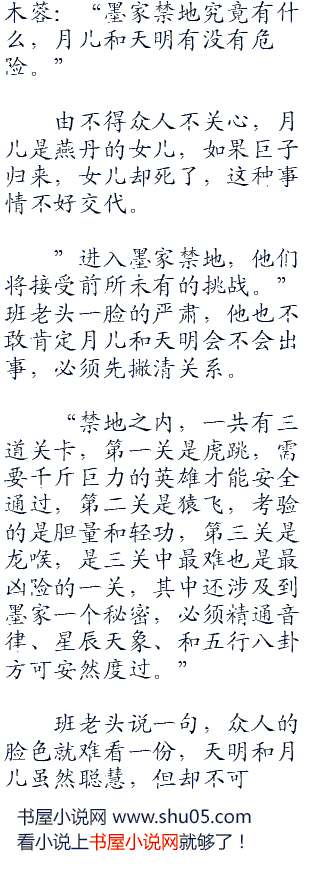 木蓉：“墨家禁地究竟有什
么，月儿和天明有没有危
险。”
由不得众人不关心，月
儿是燕丹的女儿，如果巨子
归来，女儿却死了，这种事
情不好交代。
”进入墨家禁地，他们
将接受前所未有的挑战。”
班老头一脸的严肃，他也不
敢肯定月儿和天明会不会出
事，必须先撇清关系。
“禁地之内，一共有三
道关卡，第一关是虎跳，需
要千斤巨力的英雄才能安全
通过，第二关是猿飞，考验
的是胆量和轻功，第三关是
龙喉，是三关中最难也是最
凶险的一关，其中还涉及到
墨家一个秘密，必须精通音
律、星辰天象、和五行八卦
方可安然度过。”
班老头说一句，众人的
脸色就难看一份，天明和月
儿虽然聪慧，但却不可
书屋小说网 www.shu05.com
看小说上书屋小说网就够了！